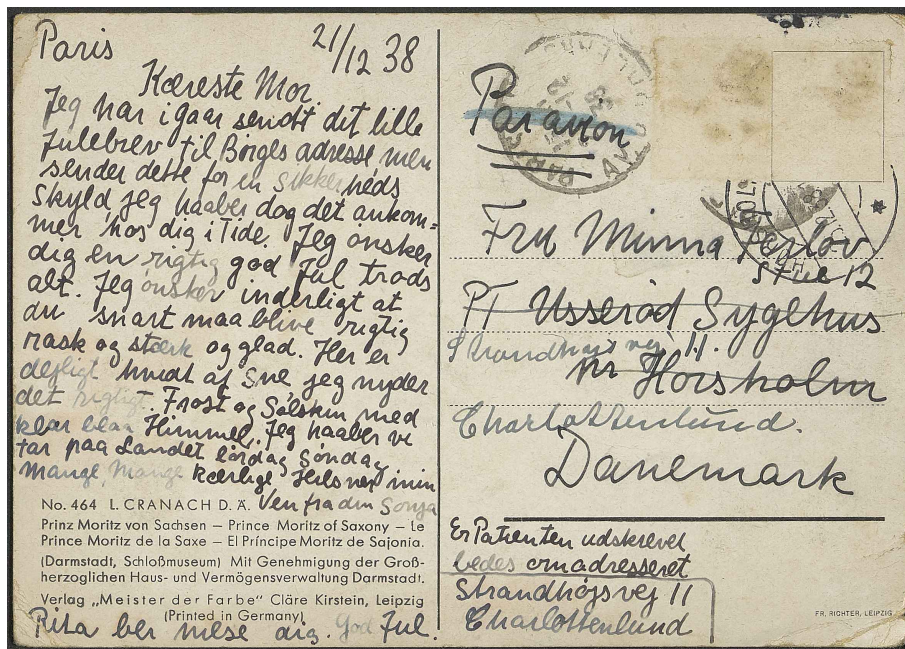 Paris 21/12 38
Kæreste Mor
Jeg har i gaar sendt dit lille
Julebrev til Börges adresse men
sender dette for en sikkerheds
Skyld jeg haaber dog det ankom=
mer hos dig i Tide. Jeg ønsker
dig en rigtig god Jul trods
alt. Jeg ønsker inderligt at
du snart maa blive rigtig
rask og stærk og glad. Her er
dejligt hvidt af Sne jeg nyder
det rigtigt. Frost og Solskin med
klar blaa Himmel. Jeg haaber vi
tar paa Landet Lørdag Søndag
Mange, Mange kærlige Hilsner min
Ven fra din Sonja
No. 464 L. CRANACH D. Ä.
Prinz Moritz von Sachsen – Prince Moritz of Saxony – Le
Prince Moritz de la Saxe – El Príncipe Moritz de Sajonia.
(Darmstadt, Schloßmuseum) Mit Genehmigung der Groß-
herzoglichen Haus- und Vermögensverwaltung Darmstadt.
Verlag „Meister der Farbe" Cläre Kirstein, Leipzig
(Printed in Germany)
Rita ber hilse dig. God Jul.
Par avion
Fru Minna
Stue 12
PT Usserød Sygehus
Strandhøjsvej 11.
nr Hørsholm
Charlottenlund.
Danemark
Er Patienten udskrevet
bedes omadresseret
Strandhøjsvej 11
Charlottenlund
FR. RICHTER, LEIPZIG